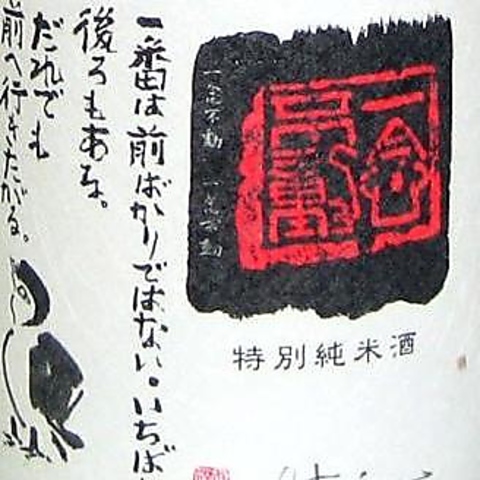 一念不動
一念不動 一念不動
特別純米酒
一番は前ばかりではない。いちば
後ろもある。
だれでも
前へ行きたがる。